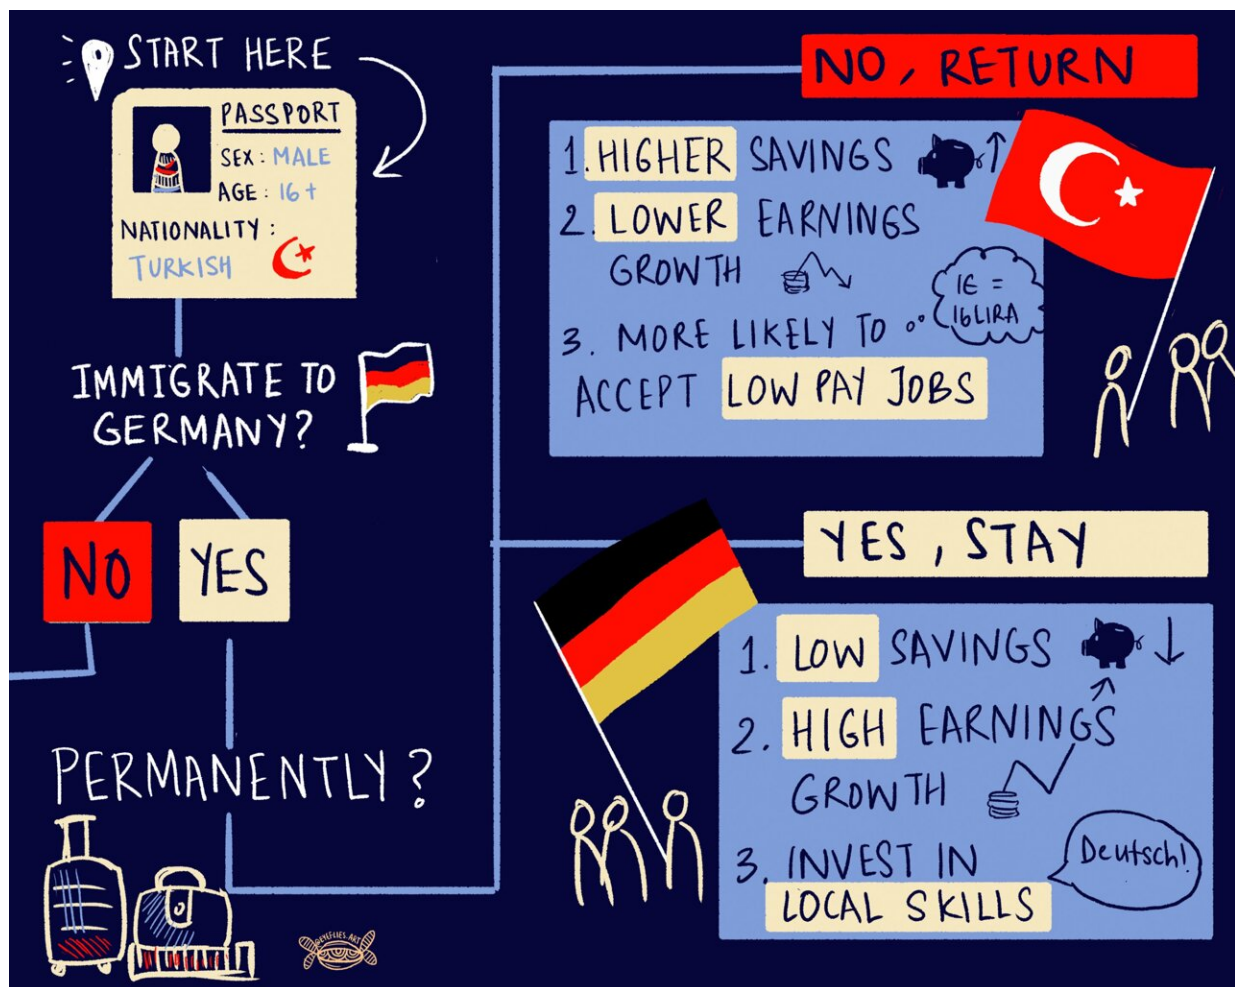 START HERE
PASSPORT
SEX : MALE
AGE : 16+
NATIONALITY :
TURKISH
IMMIGRATE TO
GERMANY?
NO
YES
PERMANENTLY?
@EYEFLIES.ART
NO, RETURN
1. HIGHER SAVINGS
2. LOWER EARNINGS
GROWTH
1€ =
16LIRA
3. MORE LIKELY TO
ACCEPT LOW PAY JOBS
YES, STAY
1. LOW SAVINGS
2. HIGH EARNINGS
GROWTH
3. INVEST IN
LOCAL SKILLS
Deutsch!